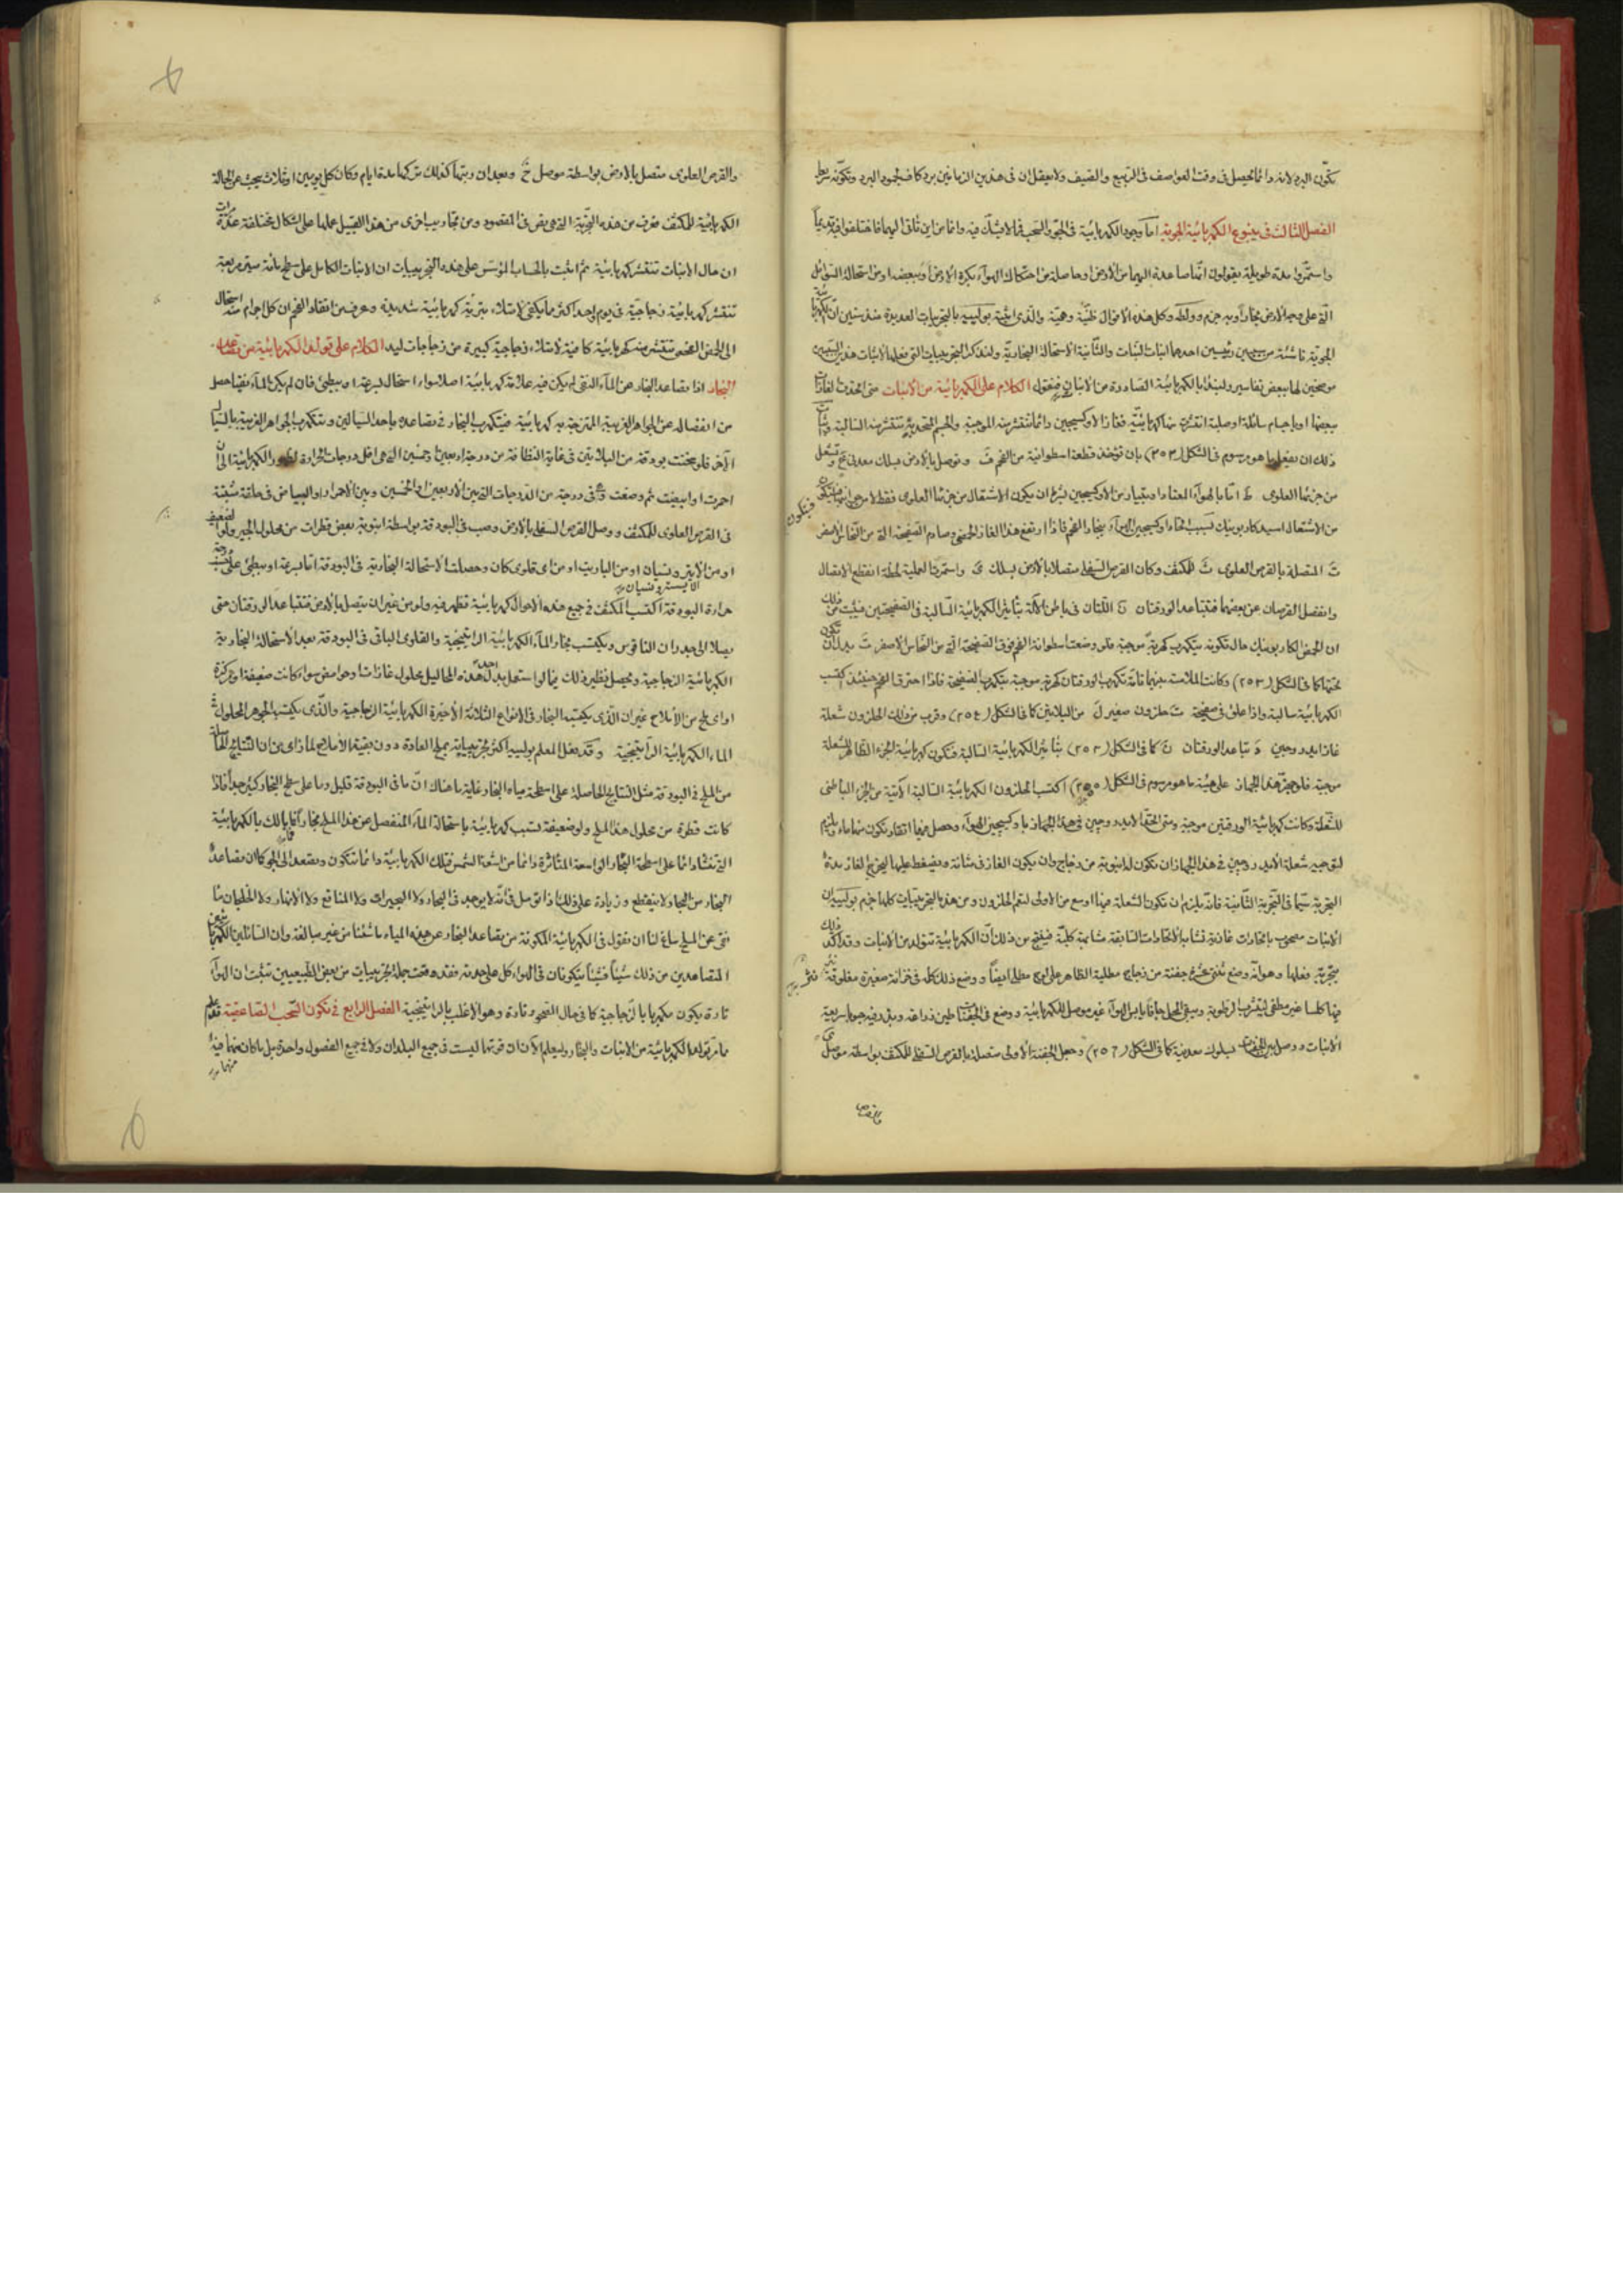 تكوّن البرد لانه دائما يحصل فى وقت العواصف فى الربيع والصيف ولا يعقل ان فى هذين الزمانين برد كاف لجمود البرد وتكونه
الفصل الثالث فى ينبوع الكهربائية الجوية اما وجود الكهربائية فى الجو والسحب فما لا يشك فيه وانما من اين تأتى اليهما فاختلفوا فيه قديماً
واستمروا مدة طويلة يقولون انها صاعدة اليهما من الارض او حاصلة من احتكاك الهوآء بكرة الارض او ببعضه او من استحالة السوائل
التى على وجه الارض بخاراً وبه جزم وولطه وكل هذه الاقوال ظنية وهمية والذى اثبته بوليسيه بالتجربات العديدة منذ سنين ان الكهربائية
الجوية ناشئة من سببين رئيسين احدهما انبات النبات والثانية الاستحالة البخارية ولنذكر التجربيات التى فعلها لاثبات هذين السببين
موضحين لها ببعض تفاسير ولنبدأ بالكهربائية الصادرة من الانبات فنقول الكلام على الكهربائية من الانبات متى اتحدت الغازات
ببعضها او باجسام سائلة او صلبة انتشرت منها كهربائية فغاز الاوكسيجين دائما تنتشر منه الموجبة والجسم المتحد به تنتشر منه السالبة
ذلك ان يفعل ما هو مرسوم فى الشكل (٢٥٣) بان توخذ قطعة اسطوانية من الفحم ف وتوصل بالارض بسلك معدنى وتشعل
من جزئها العلوى ط اما بالهوآء المعتاد او بتيار من الاوكسيجين بشرط ان يكون الاشتعال من جزئها العلوى فقط لا من جوانبها فيتكون
من الاشتعال اسيد كاربونيك بسبب اتحاد اوكسيجين الهوآء ببخار الفحم فاذا ارتفع هذا الغاز الحمضى وصادم الصفيحة التى من النحاس الاصفر
ث المتصلة بالقرص العلوى ث للمكثف وكان القرص السفلى متصلا بالارض بسلك ى واستمرت العملية لحظة انقطع الاتصال
وانفصل القرصان عن بعضهما فتتباعد الورقتان اللتان فى باطن الآلة بتأثير الكهربائية السالبة فى الصفيحتين فيثبت من ذلك
ان الحمض الكاربونيك حال تكونه يتكهرب كهربة موجبة فلو وضعت اسطوانة الفحم فوق الصفيحة التى من النحاس الاصفر ث بدل ان تكون
تحتها كما فى الشكل (٢٥٣) وكانت الملامسة بينهما تامة تكهربت الورقتان كهربة موجبة بتكهرب الصفيحة فاذا احترق الفحم حينئذ اكتسب
الكهربائية سالبة واذا علق فى صفيحة ث حلزون صغير ل من البلاتين كما فى الشكل (٢٥٤) وقرب من ذلك الحلزون شعلة
غاز ايدروجين د تتباعد الورقتان كما فى الشكل (٢٥٣) بتأثير الكهربائية السالبة فتكون كهربائية الجزء الظاهر للشعلة
موجبة فلو جهز هذا الجهاز على هيئة ما هو مرسوم فى الشكل (٢٥٥) اكتسب الحلزون الكهربائية السالبة الآتية من الجزء الباطنى
للشعلة وكانت كهربائية الورقتين موجبة ومتى اتحد الايدروجين فى هذا الجهاز باوكسيجين الهوآء وحصل فيها اتقاد تكون منهما ماء ويلزم
لتوجيه شعلة الايدروجين فى هذا الجهاز ان يكون له انبوبة من زجاج وان يكون الغاز فى مثانة ويضغط عليها ليخرج الغاز مدة
التجربة سيما فى التجربة الثانية فانه يلزم ان تكون الشعلة فيها اوسع من الاولى لتعم الحلزون ومن هذه التجربيات كلها جزم بوليسيه ان
الانبات مصحوب باتحادات غازية تشابه الاتحادات السابقة مشابهة كلية فينتج من ذلك ان الكهربائية تتولد من الانبات وقد اكد ذلك
بتجربة فعلها وهو انه وضع ثنتى عشرة جفنة من زجاج مطلية الظاهر على لوح مطلى ايضاً ووضع ذلك كله فى خزانة صغيرة مغلوقة
فيها كلسا غير مطفى ليتشرب الرطوبة ويبقى المحل جافا يابس الهوآء غير موصل للكهربائية ووضع فى الجفنات طين زراعة وبذر فيه حبوبا سريعة
الانبات ووصل بين الجفنات بسلوك معدنية كما فى الشكل (٢٥٦) وجعل الجفنة الاولى متصلة بالقرص السفلى للمكثف بواسطة موصل
والقرص
والقرص العلوى متصل بالارض بواسطة موصل خ وبعد ان رتبها كذلك تركها مدة ايام وكان كل يومين او ثلاث يبحث عن الحالة
الكهربائية للمكثف فعرف من هذه التجربة التى هى نص فى المقصود ومن تجاريب اخرى من هذا القبيل عملها على اشكال مختلفة عدة مرات
ان حال الانبات تنتشر كهربائية ثم اثبت بالحساب المؤسس على هذه التجربيات ان الانبات الكامل على سطح مائة ميتر مربعة
تنتشر كهربائية زجاجية فى يوم واحد اكثر ما يكفى لامتلاء بترية كهربائية شديدة وعرف من اتقاد الفحم ان كل اجرام منه استحال
الى الحمض الفحمى تنتشر منه كهربائية كافية لامتلاء زجاجية كبيرة من زجاجات ليد الكلام على تولد الكهربائية من تصاعد
البخار اذا تصاعد البخار عن المآء النقى لم يكن فيه علامة كهربائية اصلا سواء استحال بسرعة او ببطئ فان لم يكن المآء نقيا حصل
من انفصاله عن الجواهر الغريبة الممتزجة به كهربائية فيتكهرب البخار فى تصاعده باحد السيالين وتتكهرب الجواهر الغريبة بالسيال
الآخر فلو سخنت بودقة من البلاتين فى غاية النظافة من درجة اربعين او خمسين الى ان
احمرت او ابيضت ثم وضعت وهى فى درجة من الدرجات التى بين الاربعين او الخمسين وبين الاحمرار او البياض فى حلقة مثبتة
فى القرص العلوى للمكثف ووصل القرص السفلى بالارض وصب فى البودقة بواسطة انبوبة بعض قطرات من محلول الجير
او من الايترونسيان او من الباريت او من اى قلوى كان وحصلت الاستحالة البخارية فى البودقة اما بسرعة او ببطئ على حسب درجة
الايسترونسيان
حرارة البودقة اكتسب المكثف فى جميع هذه الاحوال كهربائية تظهر فيه ولو من غير ان يتصل بالارض فتتباعد الورقتان حتى
يصلا الى جدران الناقوس ويكتسب بخار المآء الكهربائية الراتينجية والقلوى الباقى فى البودقة بعد الاستحالة البخارية
الكهربائية الزجاجية ويحصل نظير ذلك فيما لو استعمل بدل هذه المحاليل محلول غازات او حوامض سوا كانت ضعيفة او مركزة
او اى ملح من الاملاح غير ان الذى يكتسبه البخار فى الانواع الثلاثة الاخيرة الكهربائية الزجاجية والذى يكتسبه الجوهر المحلول فى
الماء الكهربائية الراتينجية وقد فعل المعلم بوليسيه اكثر تجربياته بملح العادة دون بقية الاملاح لما راى من ان النتائج الحاصلة
من الملح فى البودقة مثل النتايج الحاصلة على اسطحة مياه البخار غاية ما هناك ان ما فى البودقة قليل وما على سطح البخار كثير جداً فاذا
كانت قطرة من محلول هذا الملح ولو ضعيفة تسبب كهربائية باستحالة المآء المنفصل عن هذا الملح بخارا فما بالك بالكهربائية
التى تنشا دائما على اسطحة البحار الواسعة المتأثرة دائما من اشعة الشمس فتلك الكهربائية دائما تتكون وتصعد الى الجو كما ان تصاعد
البخار من البحار لا ينقطع وزيادة على ذلك اذا توصل فى انه لا يوجد فى البحار ولا البحيرات ولا المناقع ولا الانهار ولا الخلجان ما
نقى عن الملح ساغ لنا ان نقول فى الكهربائية المكونة من تصاعد البخار عن هذه المياه ما شئنا من غير مبالغة وان السائلين الكهربائيين
المتصاعدين من ذلك شيئاً فشيئاً يتكونان فى الهواء كل على حدته فقد وقعت جملة تجربيات من بعض الطبيعيين تثبت ان الهوآء
تارة يكون مكهربا بالزجاجية كما فى حال الصحو وتارة وهو الاغلب بالراتينجية الفصل الرابع فى تكون السحب الصاعقية قد علم
مما مر تولد الكهربائية من الانبات والبخار وليعلم الآن ان قوتهما ليست فى جميع البلدان ولا فى جميع الفصول واحدة بل ما كان منهما فيه